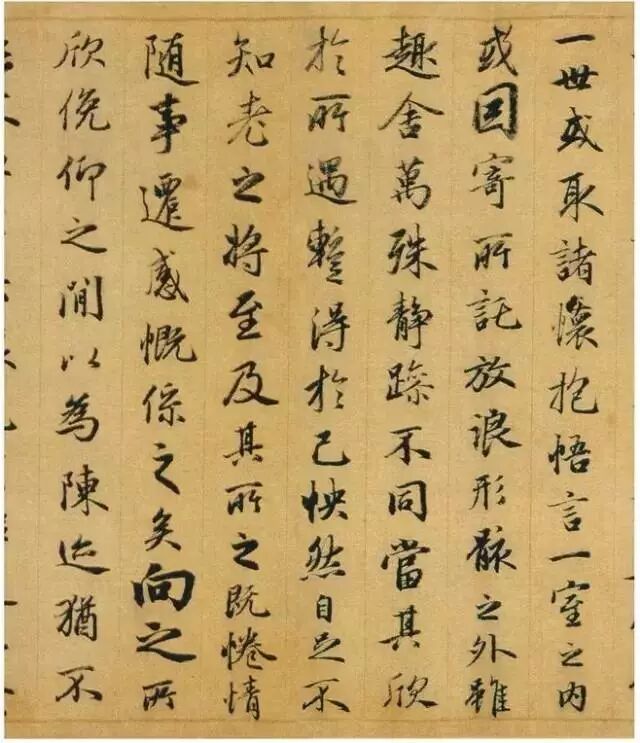 一世或取諸懷抱悟言一室之内
或因寄所託放浪形骸之外雖
趣舍萬殊靜躁不同當其欣
於所遇暫得於己怏然自足不
知老之將至及其所之既惓情
隨事遷感慨係之矣向之所
欣俛仰之閒以為陳迹猶不